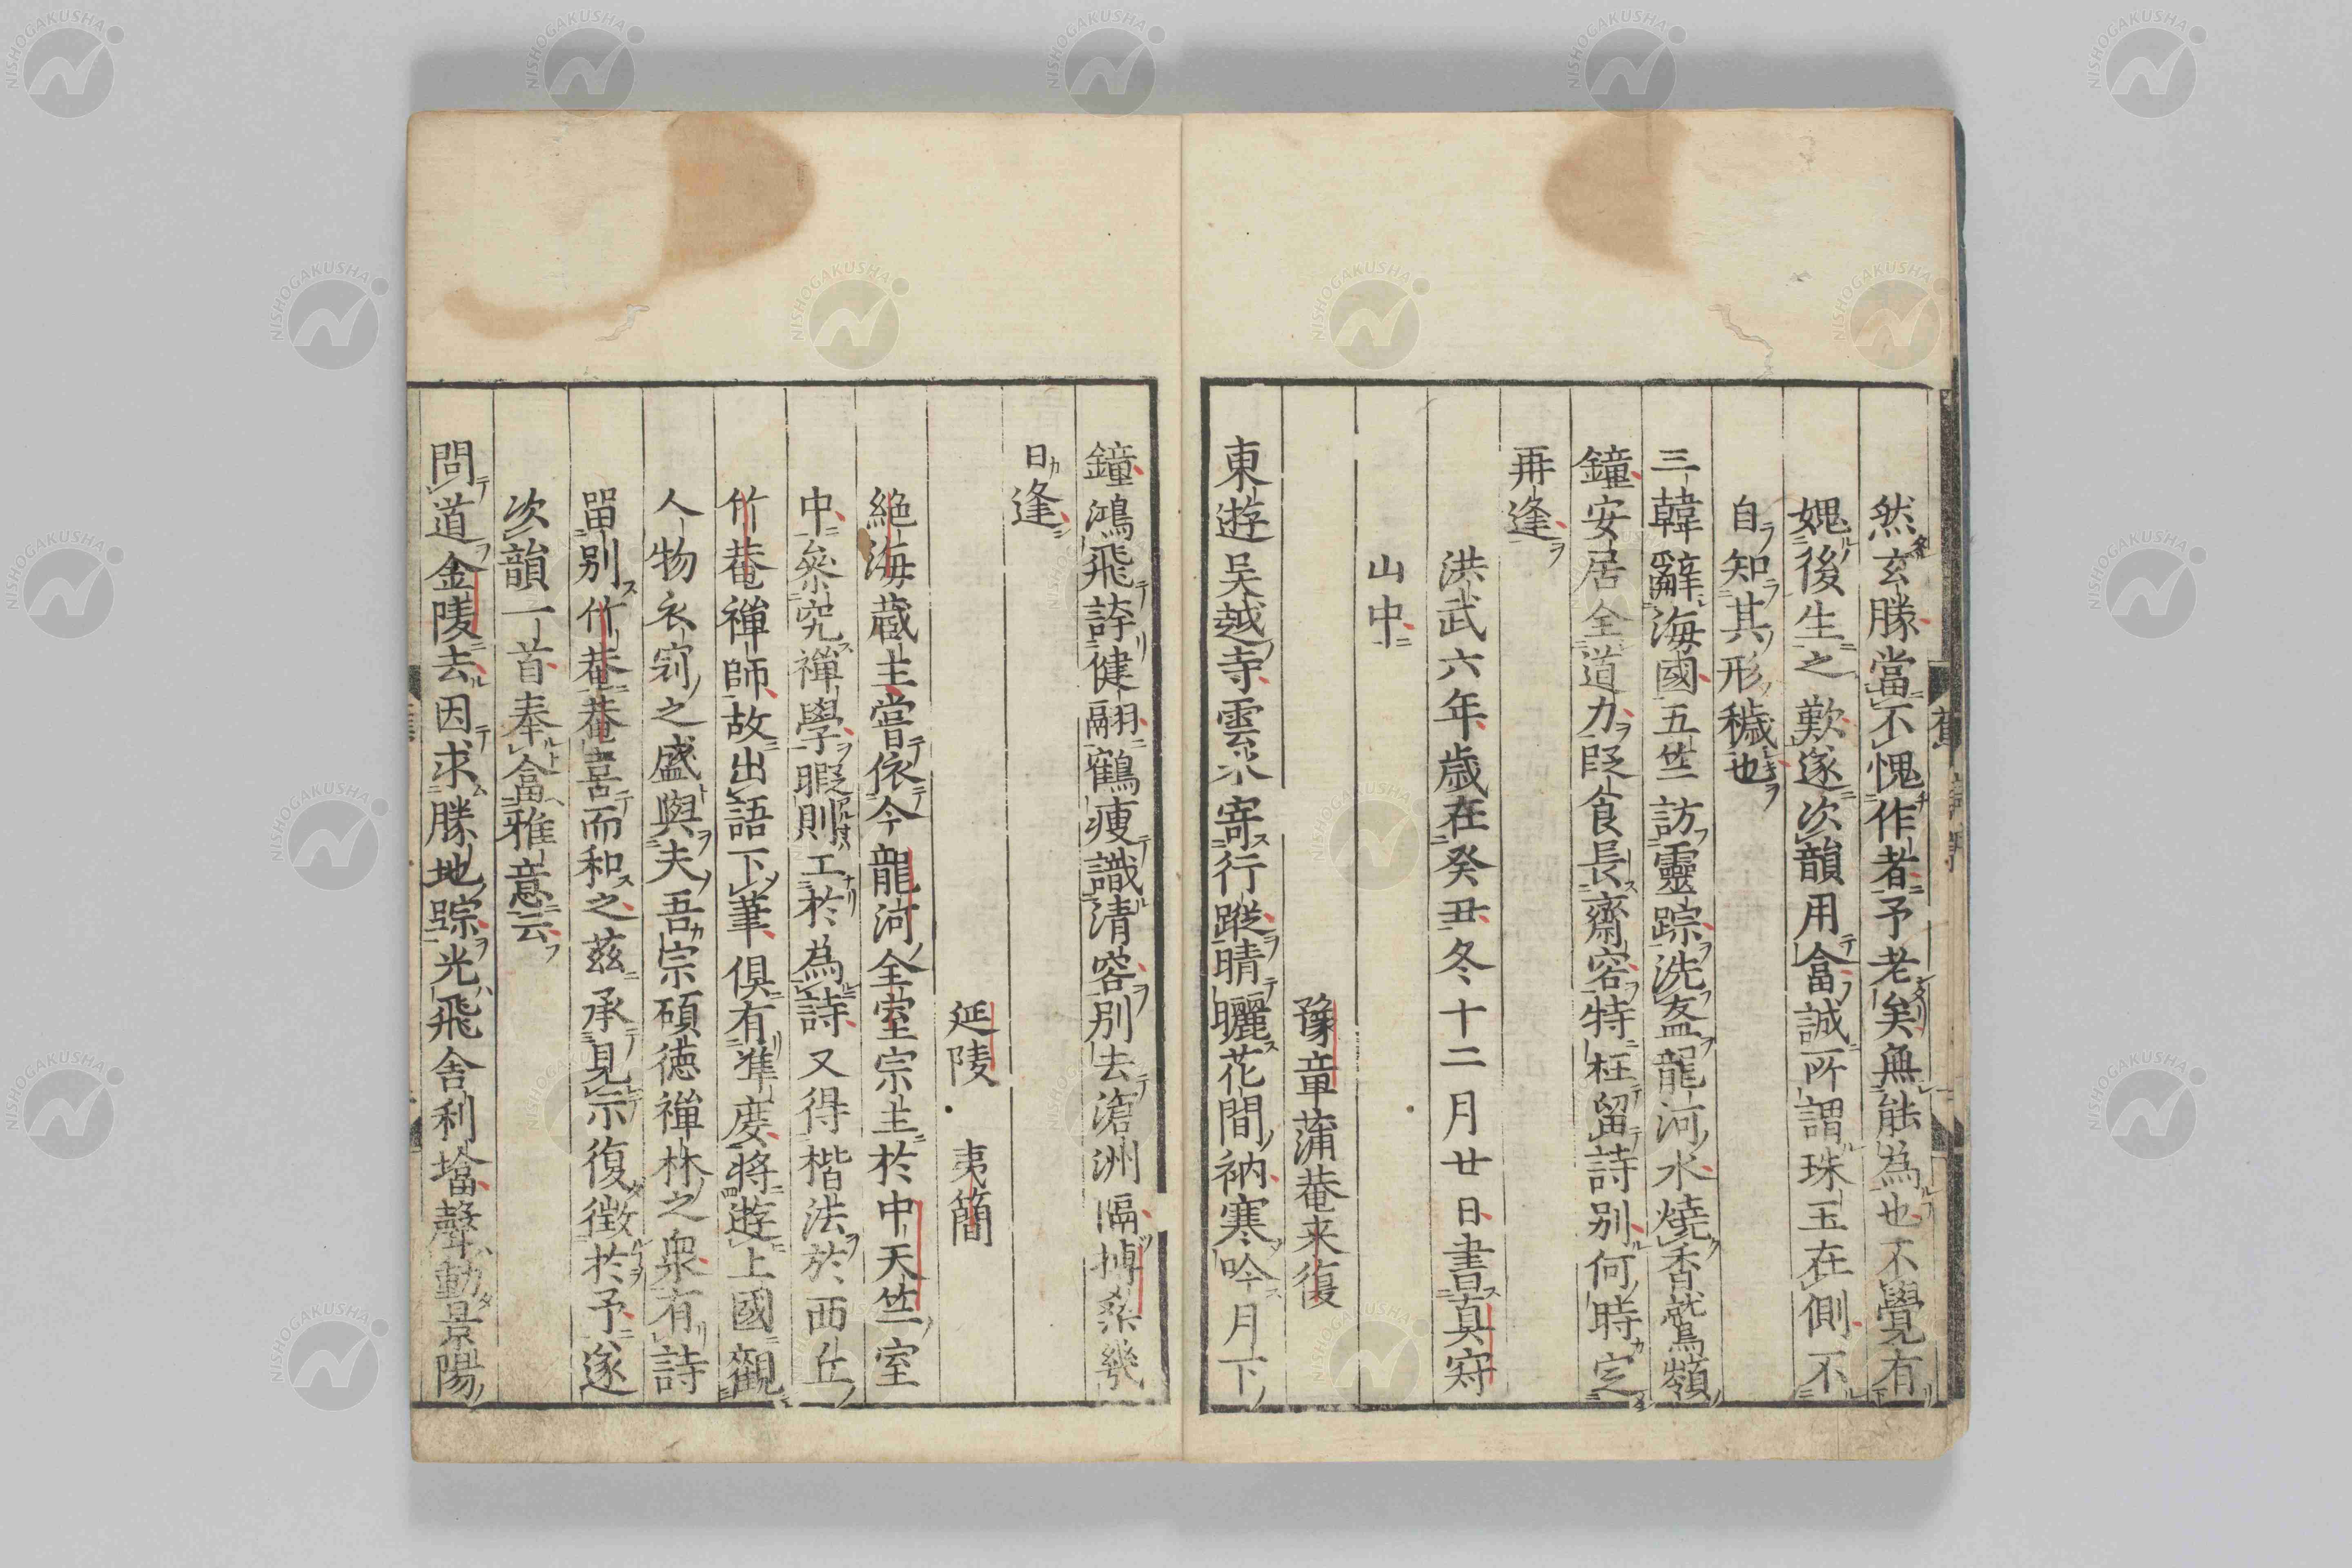 然玄勝當不愧作者予老矣無能為也不覺有
媿後生之歎遂次韻用畣誠所謂珠玉在側不
自知其形穢也
三韓辭海國五竺訪靈踪洗盋龍河水燒香鷲嶺
鐘安居全道力旣食長齋容特枉留詩別何時定
再逢
洪武六年歳在癸丑冬十二月廿日書眞㝛
山中
豫章蒲菴来復
東遊吴越寺雲水寄行蹤晴曬花間衲寒吟月下
鐘鴻飛誇健翮鶴痩識清容別去滄洲隔搏桒幾
日逢
延陵 夷簡
絶海蔵主嘗依今龍河全室宗主於中天竺室
中叅究禪學暇則工於為詩又得楷法於西丘
竹菴禪師故出語下筆俱有凖度將遊上國觀
人物衣𡨥之盛與夫吾宗碩徳禅林之衆有詩
畱别竹菴菴喜而和之茲承見示復徴於予遂
次韻一首奉畣雅意云
問道金陵去因求勝地踪光飛舎利㙮聲動景陽